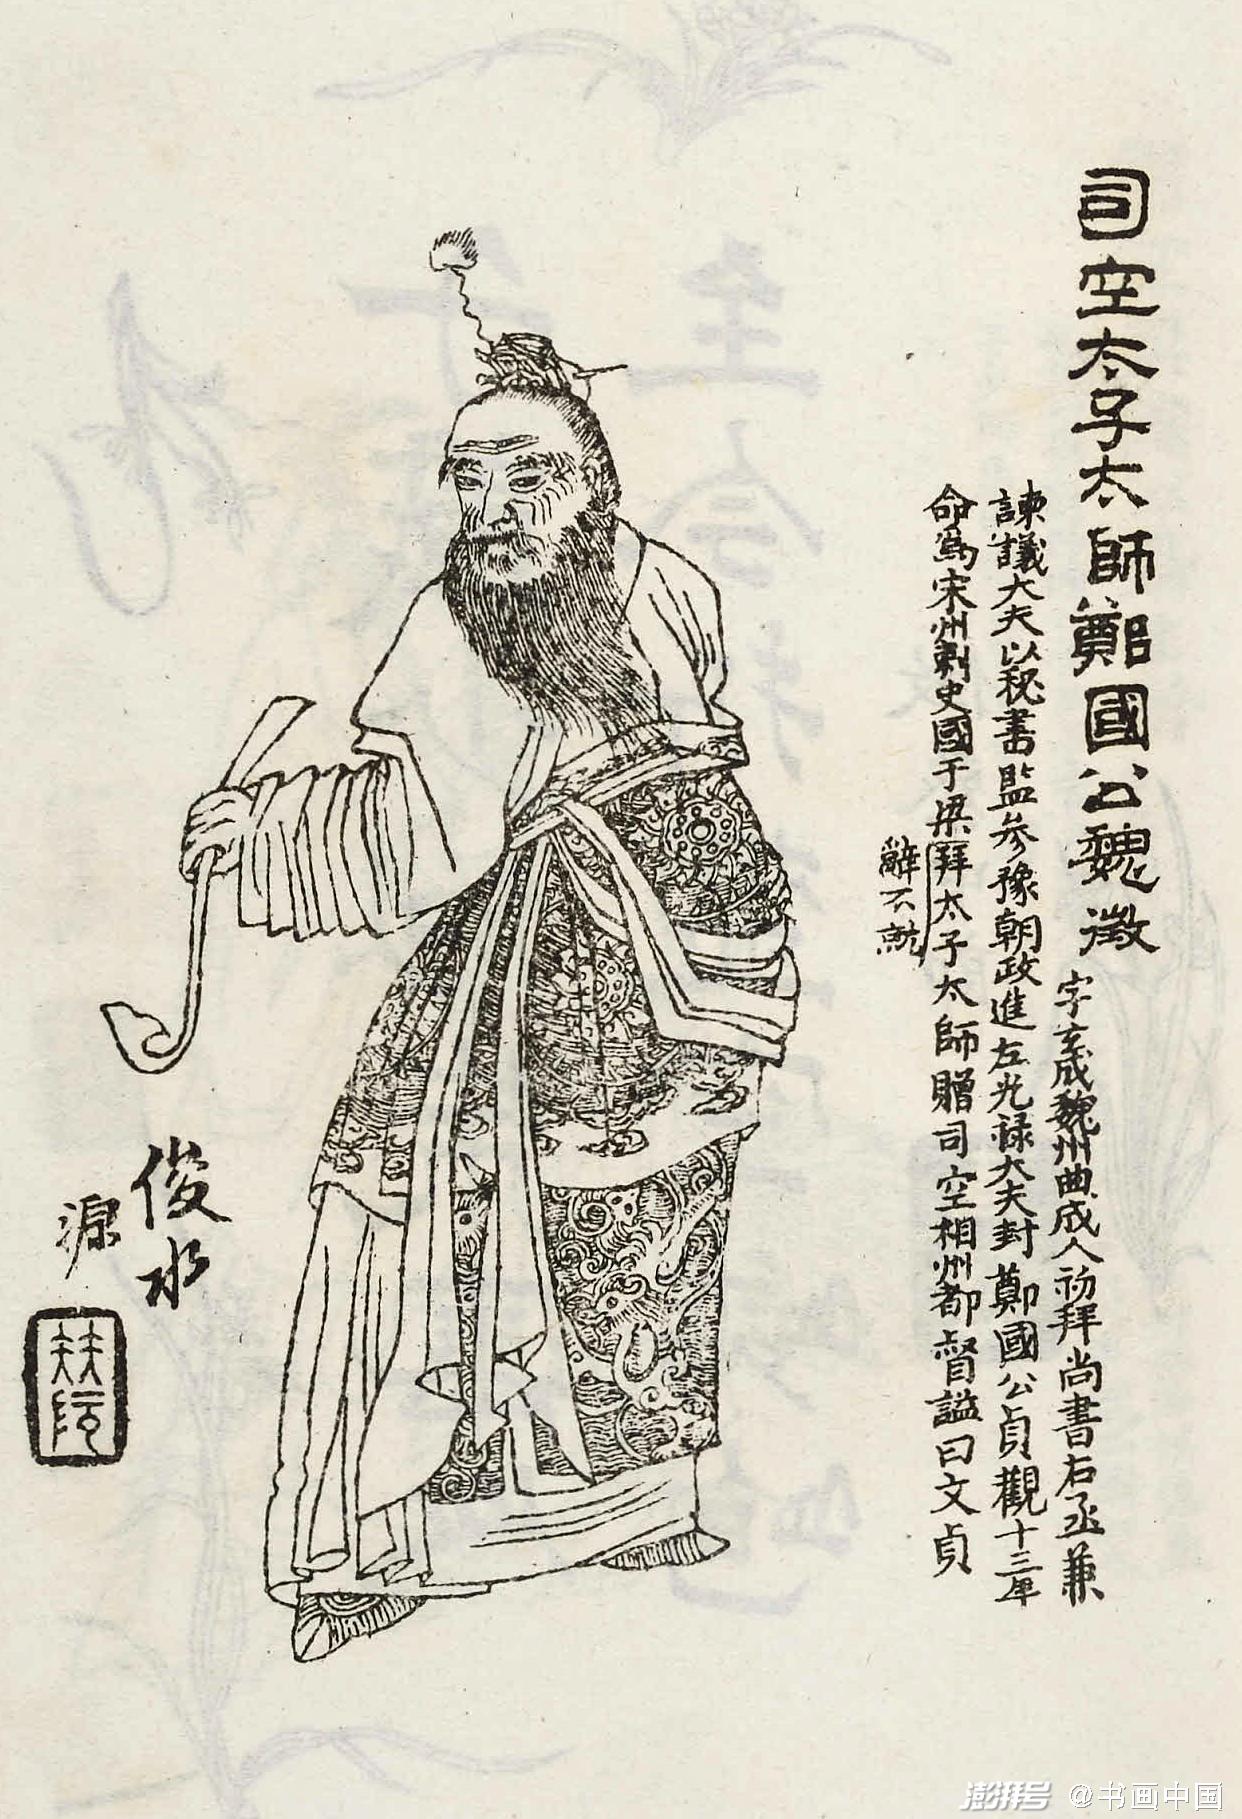 司空太子太師鄭國公魏徵
字玄成魏州曲成人初拜尚書右丞兼
諫議大夫以秘書監參豫朝政進左光祿大夫封鄭國公貞觀十三年
命爲宋州刺史國于梁拜太子太師贈司空相州都督謚曰文貞
辭不就
俊水
源
澎湃号 @书画中国